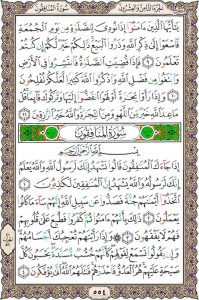 سُورَةُ الْمُنَافِقُونَ
الجُزْءُ الثَّامِنُ وَالعِشْرُونَ
يَٰٓأَيُّهَا ٱلَّذِينَ ءَامَنُوٓا۟ إِذَا نُودِىَ لِلصَّلَوٰةِ مِن يَوْمِ ٱلْجُمُعَةِ
فَٱسْعَوْا۟ إِلَىٰ ذِكْرِ ٱللَّهِ وَذَرُوا۟ ٱلْبَيْعَ ذَٰلِكُمْ خَيْرٌ لَّكُمْ إِن كُنتُمْ
تَعْلَمُونَ ٩ فَإِذَا قُضِيَتِ ٱلصَّلَوٰةُ فَٱنتَشِرُوا۟ فِى ٱلْأَرْضِ
وَٱبْتَغُوا۟ مِن فَضْلِ ٱللَّهِ وَٱذْكُرُوا۟ ٱللَّهَ كَثِيرًا لَّعَلَّكُمْ تُفْلِحُونَ
١٠ وَإِذَا رَأَوْا۟ تِجَٰرَةً أَوْ لَهْوًا ٱنفَضُّوٓا۟ إِلَيْهَا وَتَرَكُوكَ قَآئِمًا قُلْ
مَا عِندَ ٱللَّهِ خَيْرٌ مِّنَ ٱللَّهْوِ وَمِنَ ٱلتِّجَٰرَةِ وَٱللَّهُ خَيْرُ ٱلرَّٰزِقِينَ ١١
سُورَةُ الْمُنَافِقُونَ
بِسْمِ ٱللَّهِ ٱلرَّحْمَٰنِ ٱلرَّحِيمِ
إِذَا جَآءَكَ ٱلْمُنَٰفِقُونَ قَالُوا۟ نَشْهَدُ إِنَّكَ لَرَسُولُ ٱللَّهِ وَٱللَّهُ يَعْلَمُ
إِنَّكَ لَرَسُولُهُۥ وَٱللَّهُ يَشْهَدُ إِنَّ ٱلْمُنَٰفِقِينَ لَكَٰذِبُونَ ١
ٱتَّخَذُوٓا۟ أَيْمَٰنَهُمْ جُنَّةً فَصَدُّوا۟ عَن سَبِيلِ ٱللَّهِ إِنَّهُمْ سَآءَ مَا كَانُوا۟
يَعْمَلُونَ ٢ ذَٰلِكَ بِأَنَّهُمْ ءَامَنُوا۟ ثُمَّ كَفَرُوا۟ فَطُبِعَ عَلَىٰ قُلُوبِهِمْ
فَهُمْ لَا يَفْقَهُونَ ٣ وَإِذَا رَأَيْتَهُمْ تُعْجِبُكَ أَجْسَامُهُمْ
وَإِن يَقُولُوا۟ تَسْمَعْ لِقَوْلِهِمْ كَأَنَّهُمْ خُشُبٌ مُّسَنَّدَةٌ يَحْسَبُونَ كُلَّ
صَيْحَةٍ عَلَيْهِمْ هُمُ ٱلْعَدُوُّ فَٱحْذَرْهُمْ قَٰتَلَهُمُ ٱللَّهُ أَنَّىٰ يُؤْفَكُونَ ٤
٥٥٤